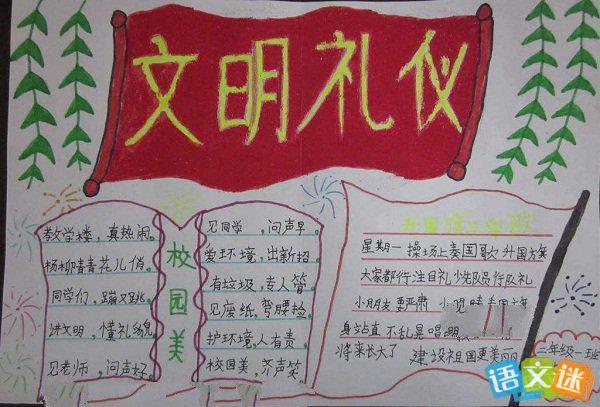 文明礼仪
教学楼，真热闹。
杨柳青青花儿俏。
同学们，蹦又跳，
讲文明，懂礼貌
见老师，问声好。
校园美
见同学，问声早。
爱环境，出新招
有垃圾，专人管
见废纸，弯腰捡
护环境，人有责。
校园美，声笑。
升国旗
星期一 操场上奏国歌 升国旗
大家都行注目礼 少先队员行队礼
小朋友 要严肃
身站直 不乱晃 唱
将来长大了 建设祖国更美丽
二年级一班
语文迷